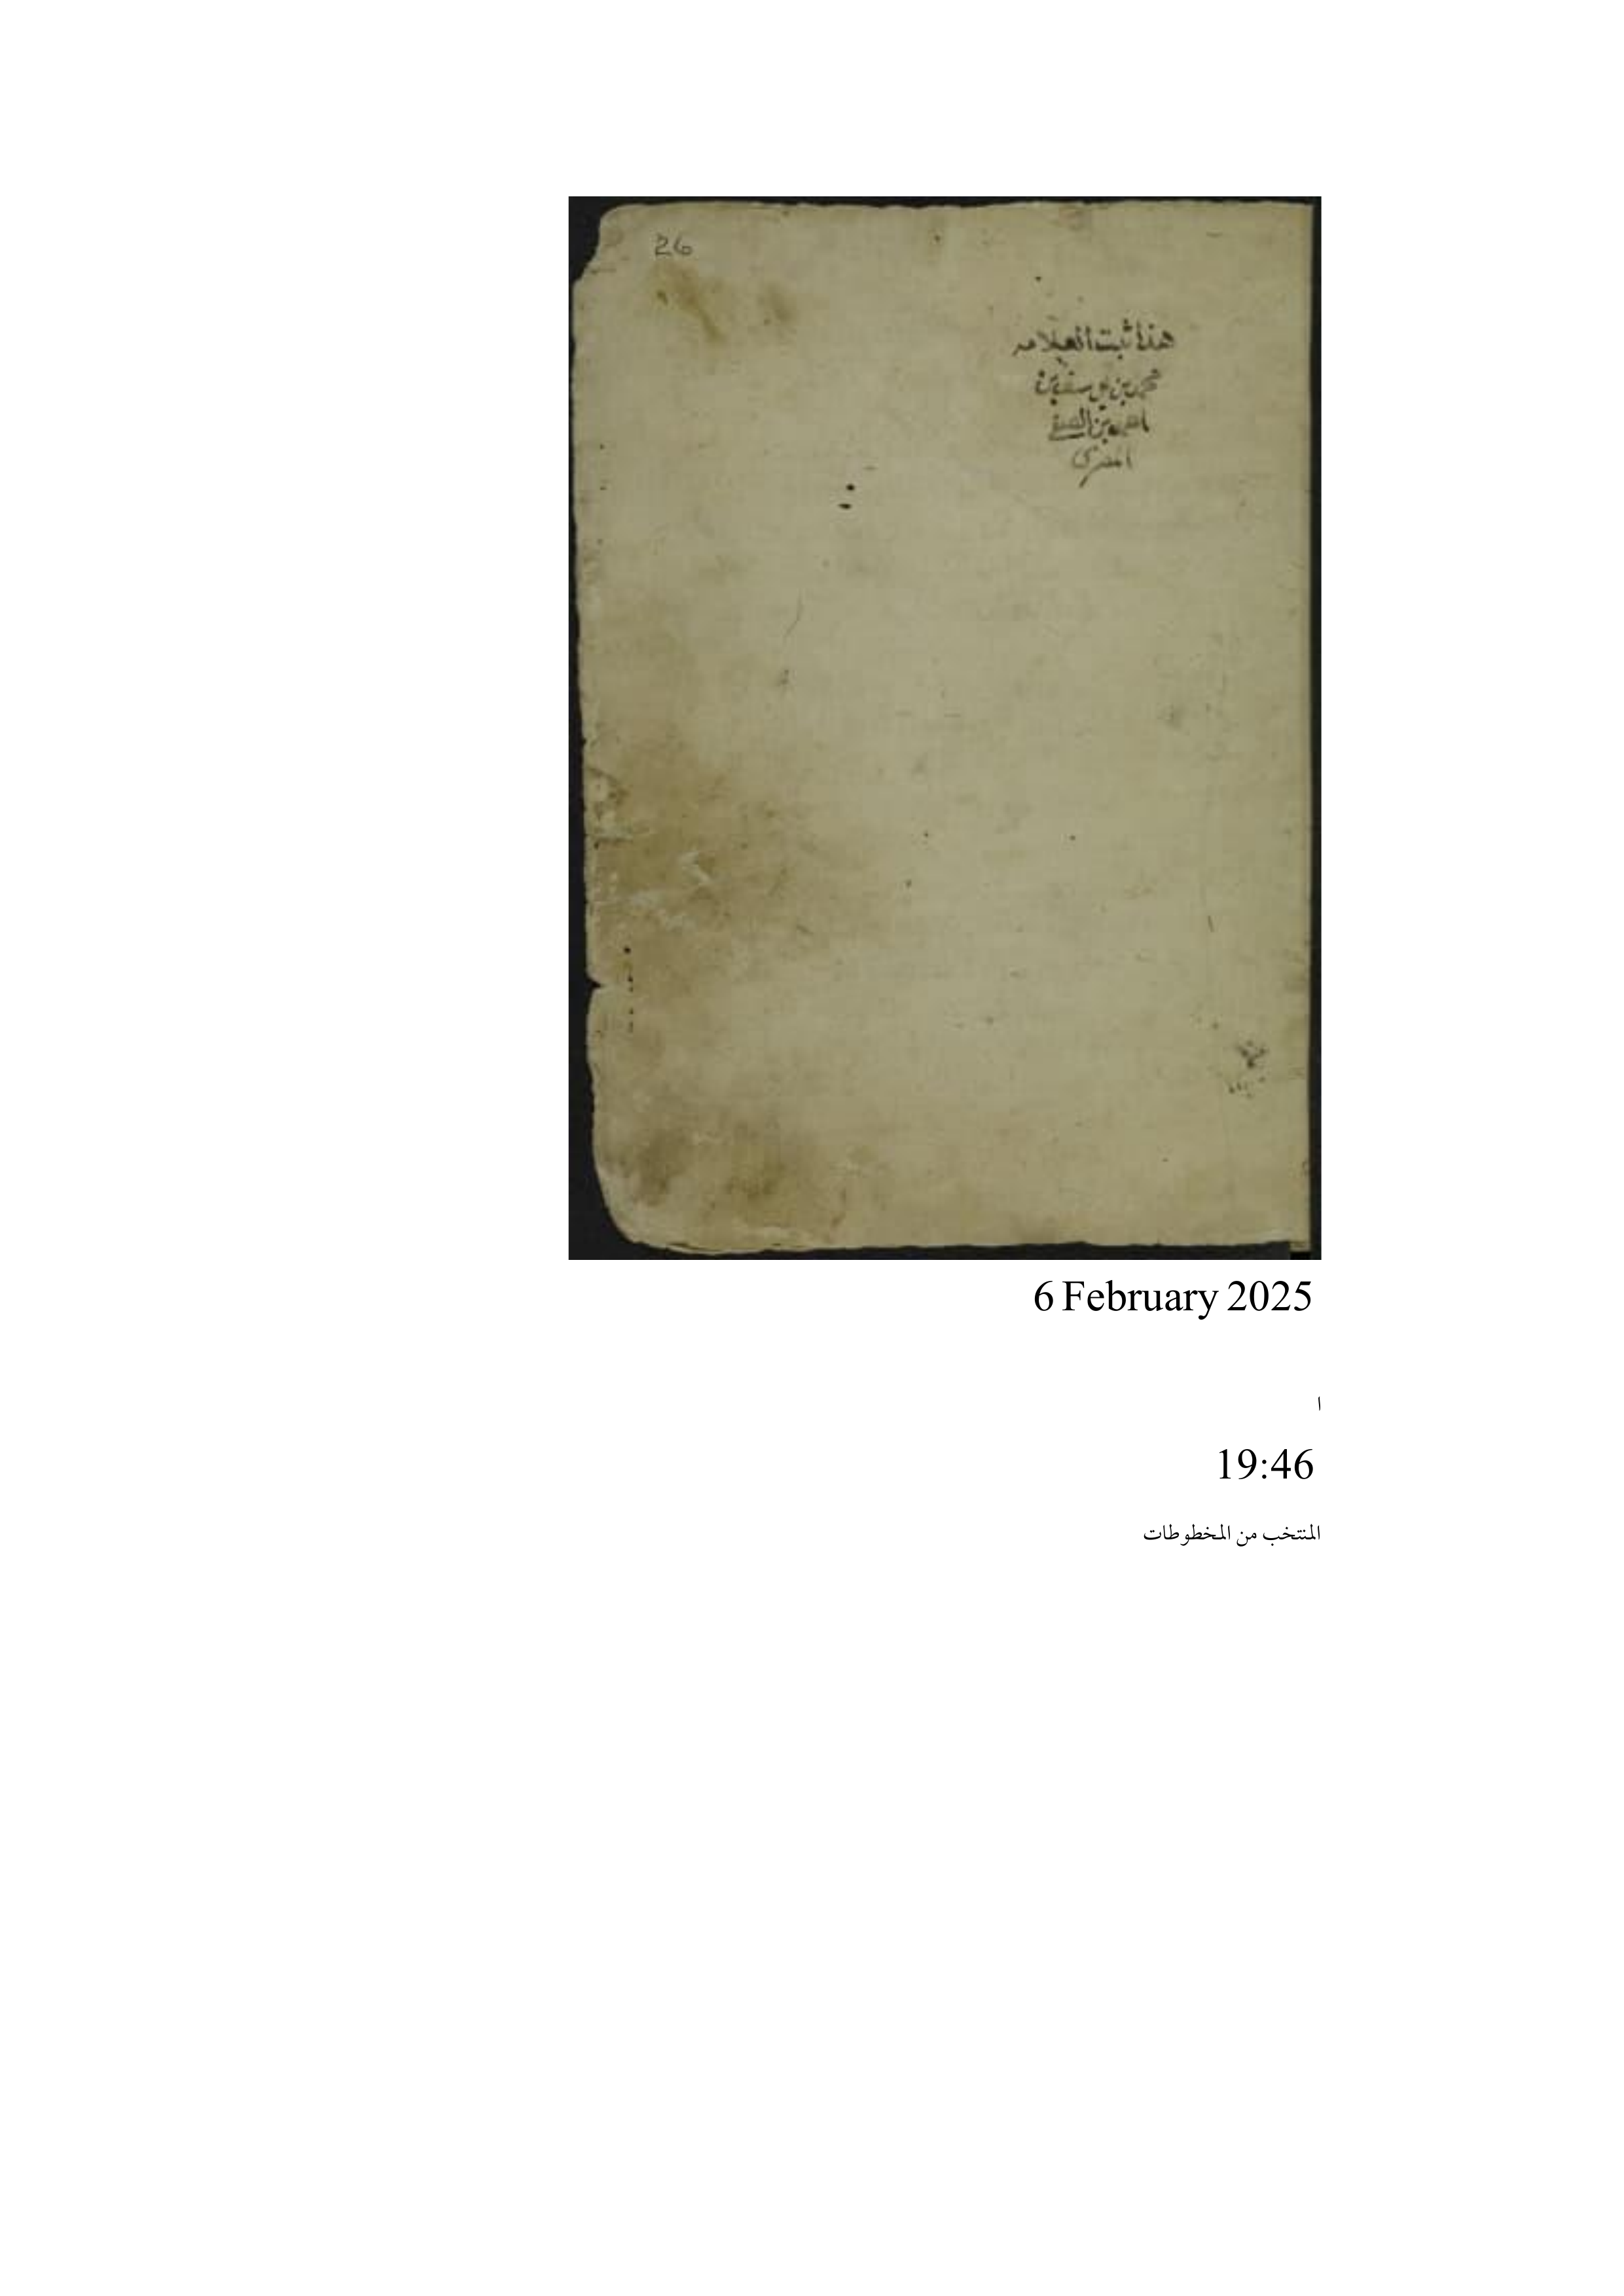 26
هذا ثبت العلامه
محمد بن
بن
المصري
6 February 2025
ا
19:46
المنتخب من المخطوطات